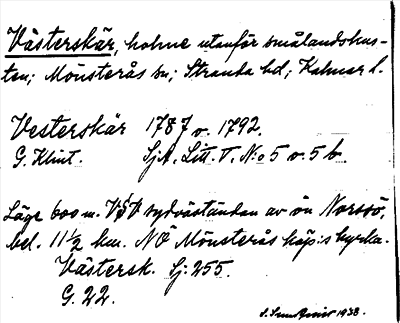 Västerskär, holme utanför smålandskus-
ten; Mönsterås sn; Stranda hd; Kalmar l.
Vesterskär 1787 o. 1792.
G. Klint. Sjk. Litt. T. N:o 5 o. 5 b.
Läge 600 m. VSV sydväständan av ön Norrö,
bel. 11 1/2 km. NÖ Mönsterås köp:s kyrka.
Västersk. Sj: 255.
G. 22.
1938.